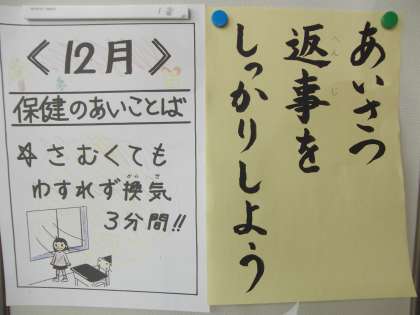 《12月》
保健のあいことば
☆さむくても
わすれず換気
3分間!!
あいさつ
返事を
しっかりしよう